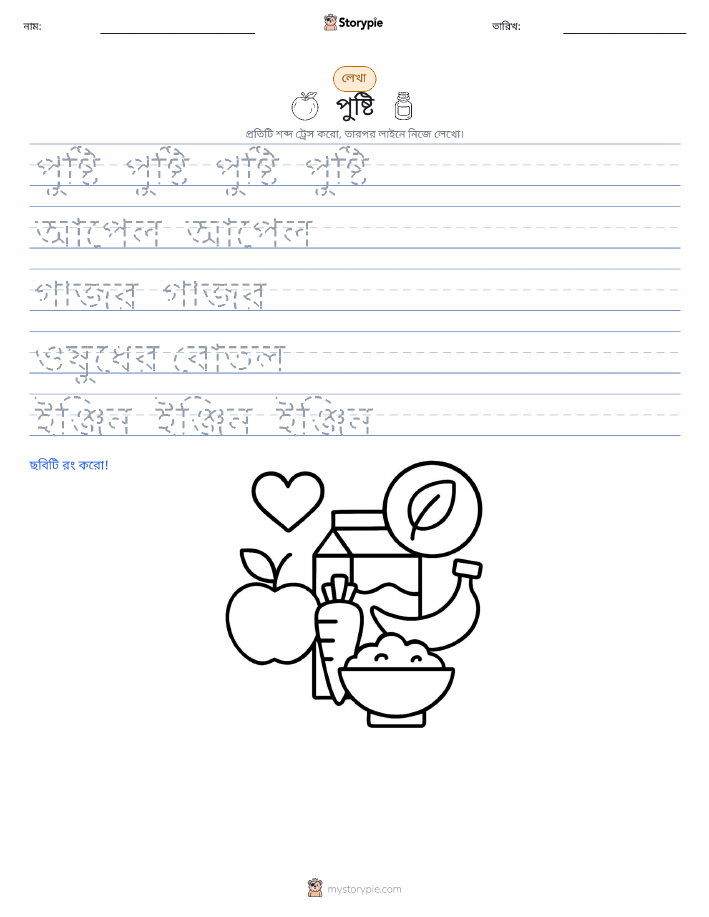 নাম: Storypie তারিখ:
লেখা
পুষ্টি
প্রতিটি শব্দ ট্রেস করো, তারপর লাইনে নিজে লেখো।
পুষ্টি পুষ্টি পুষ্টি পুষ্টি
আপেল আপেল
গাজর গাজর
ওষুধের বোতল
ইঞ্জিন ইঞ্জিন ইঞ্জিন
ছবিটি রং করো!
mystorypie.com